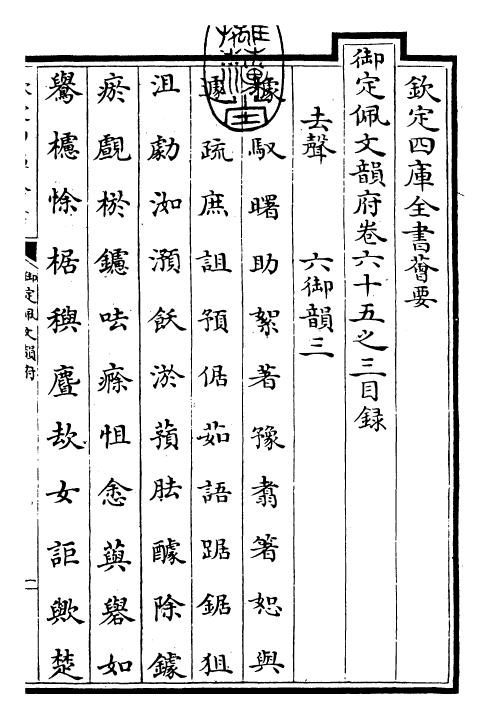 欽定四庫全書薈要
御定佩文韻府卷六十五之三目録
去聲 六御韻三
據馭曙助絮著豫翥箸恕與
遽疏庶詛預倨茹語踞鋸狙
沮勴洳澦飫淤蕷胠醵除鐻
瘀覰棜鑢呿瘵怚悆蕷礜如
鸒櫖悇椐穥麆故女詎歟楚
御定佩文韻府